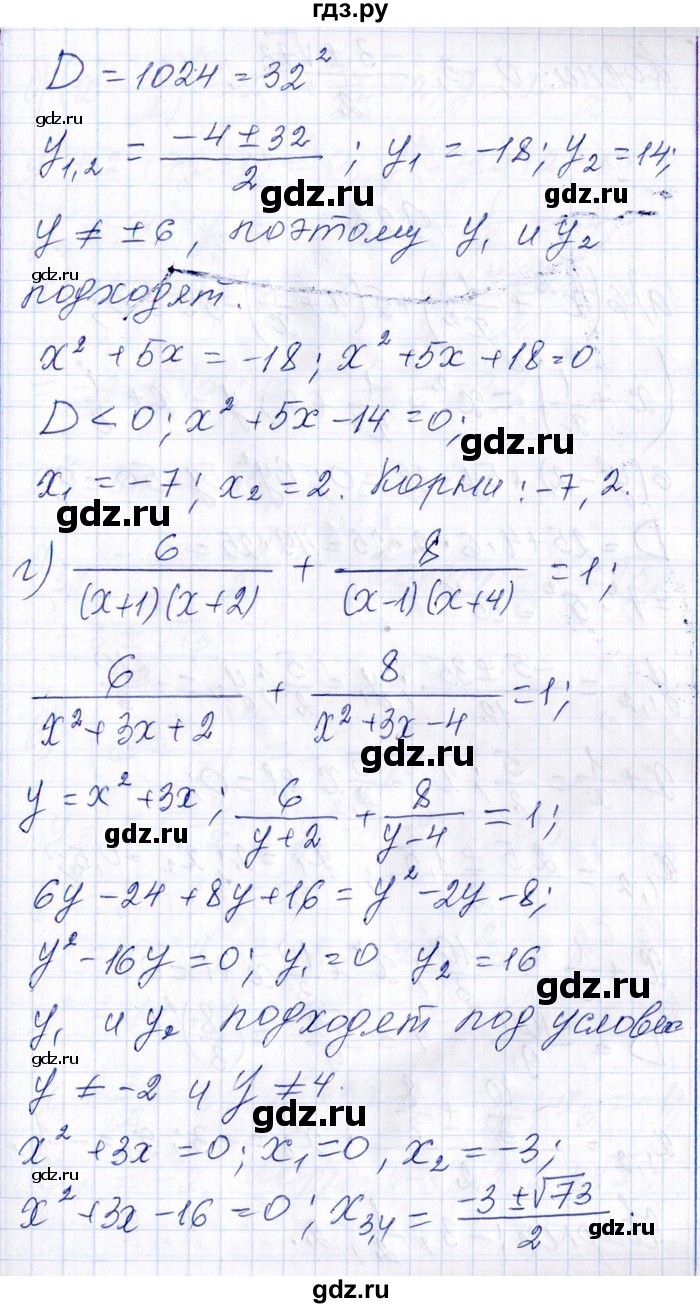 гдз.ру
D = 1024 = 32²
gdz.ru
y₁,₂ = (-4 ± 32)/2 ; y₁ = -18; y₂ = 14;
gdz.ru gdz.ru
y ≠ ±6, поэтому y₁ и y₂
gdz.ru
подходят.
x² + 5x = -18; x² + 5x + 18 = 0
D < 0; x² + 5x - 14 = 0;
gdz.ru
x₁ = -7; x₂ = 2. Корни: -7, 2.
gdz.ru
г) 6/((x+1)(x+2)) + 8/((x-1)(x+4)) = 1;
6/(x² + 3x + 2) + 8/(x² + 3x - 4) = 1;
gdz.ru
y = x² + 3x; 6/(y+2) + 8/(y-4) = 1;
gdz.ru
6y - 24 + 8y + 16 = y² - 2y - 8;
y² - 16y = 0; y₁ = 0 y₂ = 16
gdz.ru
y₁ и y₂ подходят под условия
gdz.ru
y ≠ -2 и y ≠ 4.
gdz.ru
x² + 3x = 0; x₁ = 0, x₂ = -3;
gdz.ru
x² + 3x - 16 = 0; x₃,₄ = (-3 ± √73)/2.
gdz.ru
gdz.ru
гдз.ру